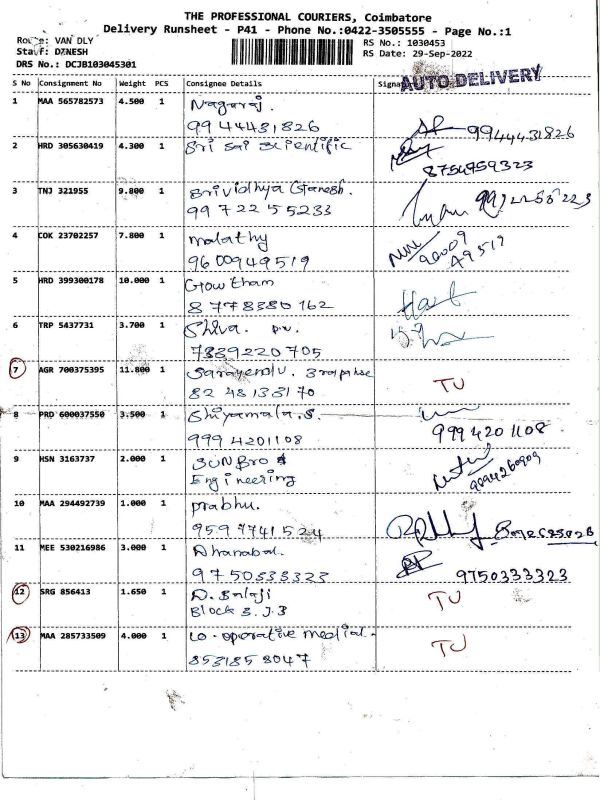 THE PROFESSIONAL COURIERS, Coimbatore
Delivery Runsheet - P41 - Phone No.:0422-3505555 - Page No.:1
Route: VAN DLY
Staff: DINESH
DRS No.: DCJB103045301
RS No.: 1030453
RS Date: 29-Sep-2022
S No Consignment No Weight PCS Consignee Details Signa
AUTO DELIVERY
1 MAA 565782573 4.500 1 Nagaraj.
9944431826 9944431826
2 HRD 305630419 4.300 1 Sri Sai Scientific
8754959323
3 TNJ 321955 9.800 1 Srividhya Ganesh.
9972255233
4 COK 23702257 7.800 1 malathy
9600949519
5 HRD 399300178 10.000 1 Gowtham
8778380162
6 TRP 5437731 3.700 1 Shiva.
7339220705
7 AGR 700375395 11.800 1
TU
8 PRD 600037550 3.500 1 Shiyamala.S.
9994201108 9994201108
9 HSN 3163737 2.000 1 SUNBRO
Engineering
10 MAA 294492739 1.000 1 prabhu.
9597741524
11 MEE 530216986 3.000 1 Dhanabal.
9750333323 9750333323
12 SRG 856413 1.650 1 D. Balaji
Block 3.J.3 TU
13 MAA 285733509 4.000 1 co-operative medical.
8531858047 TU